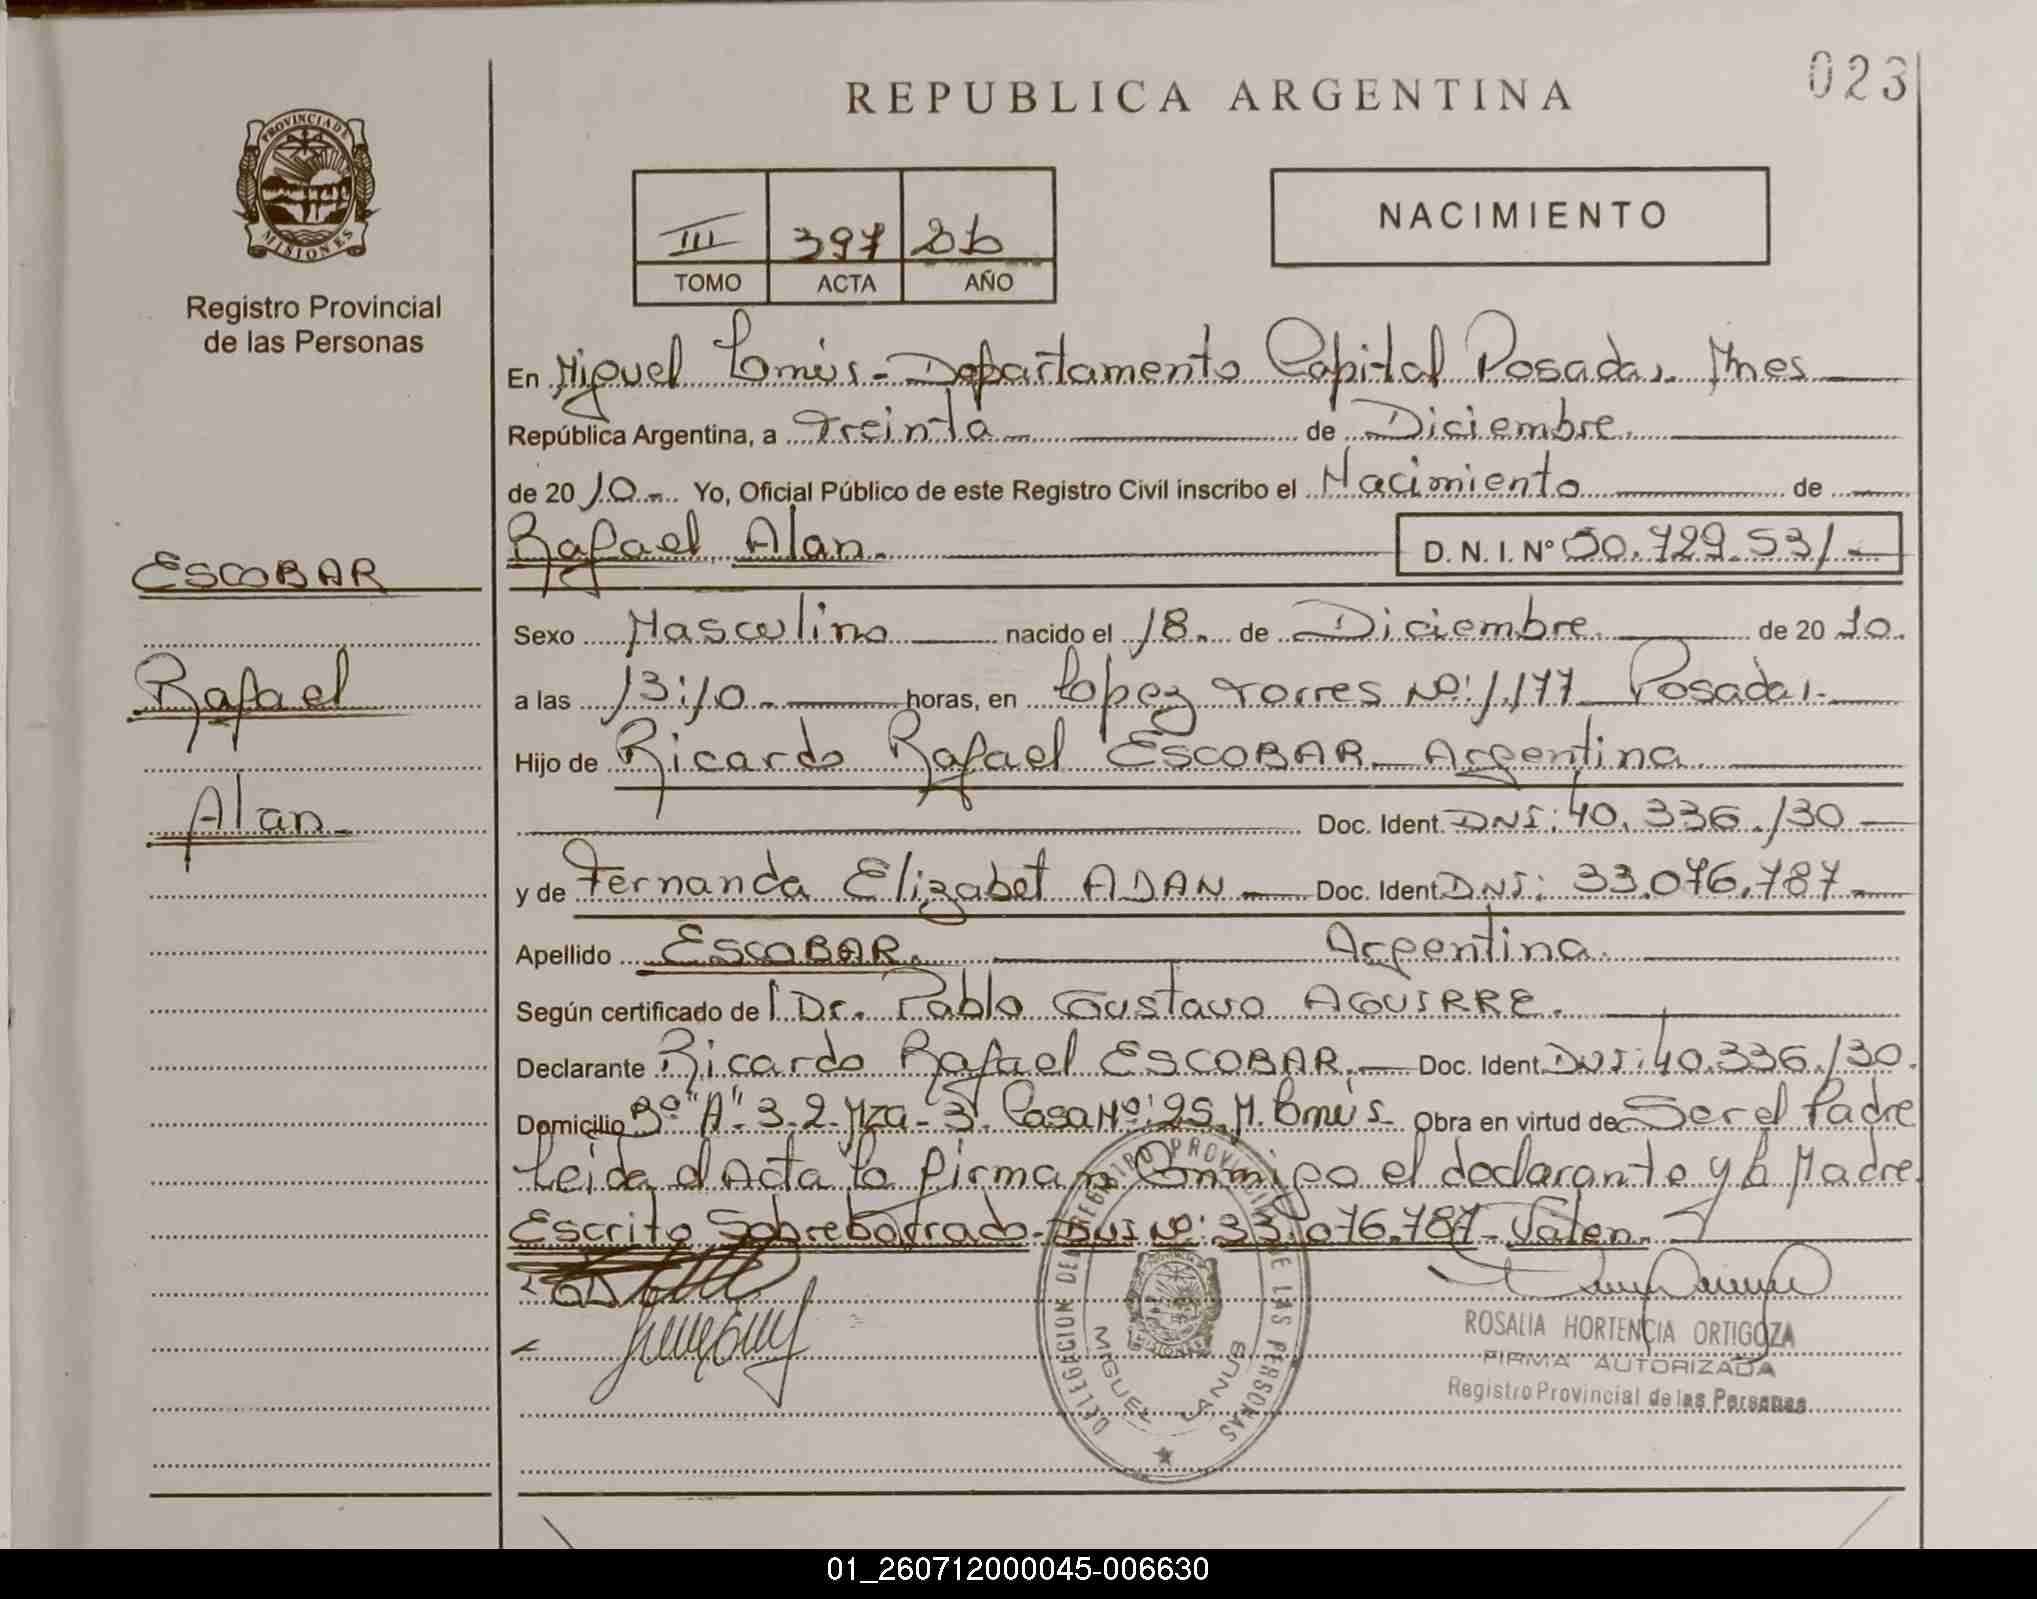 023
REPUBLICA ARGENTINA
PROVINCIA DE
MISIONES
Registro Provincial
de las Personas
III 397
TOMO ACTA AÑO
NACIMIENTO
En Miguel Lanús - Departamento Capital Posadas. Mnes
República Argentina, a Treinta de Diciembre.
de 20 10 Yo, Oficial Público de este Registro Civil inscribo el Nacimiento de
ESCOBAR
Rafael
Alan
Rafael Alan. D. N. I. Nº 50.729.531
Sexo Masculino nacido el 18 de Diciembre de 20 10.
a las 13:10 horas, en Lopez Torres Nº: 1.177 Posadas.
Hijo de Ricardo Rafael ESCOBAR Argentina
Doc. Ident. DNI: 40.336.130
y de Fernanda Elizabet ADAN Doc. Ident. DNI: 33.076.787
Apellido ESCOBAR. Argentina.
Según certificado del Dr. Pablo Gustavo AGUIRRE.
Declarante Ricardo Rafael ESCOBAR. Doc. Ident. DNI: 40.336.130.
Domicilio Bº "A" 3.2 Mza - 3 Casa Nº: 25 M. Lanús. Obra en virtud de Ser el Padre
Leida el Acta la firman Conmigo el declarante y la Madre.
Escrito Sobreborrado - DNI Nº: 33.076.787 - Valen.
DELEGACION DEL REGISTRO PROVINCIAL DE LAS PERSONAS
MIGUEL LANUS
ROSALIA HORTENCIA ORTIGOZA
FIRMA AUTORIZADA
Registro Provincial de las Personas
01_260712000045-006630